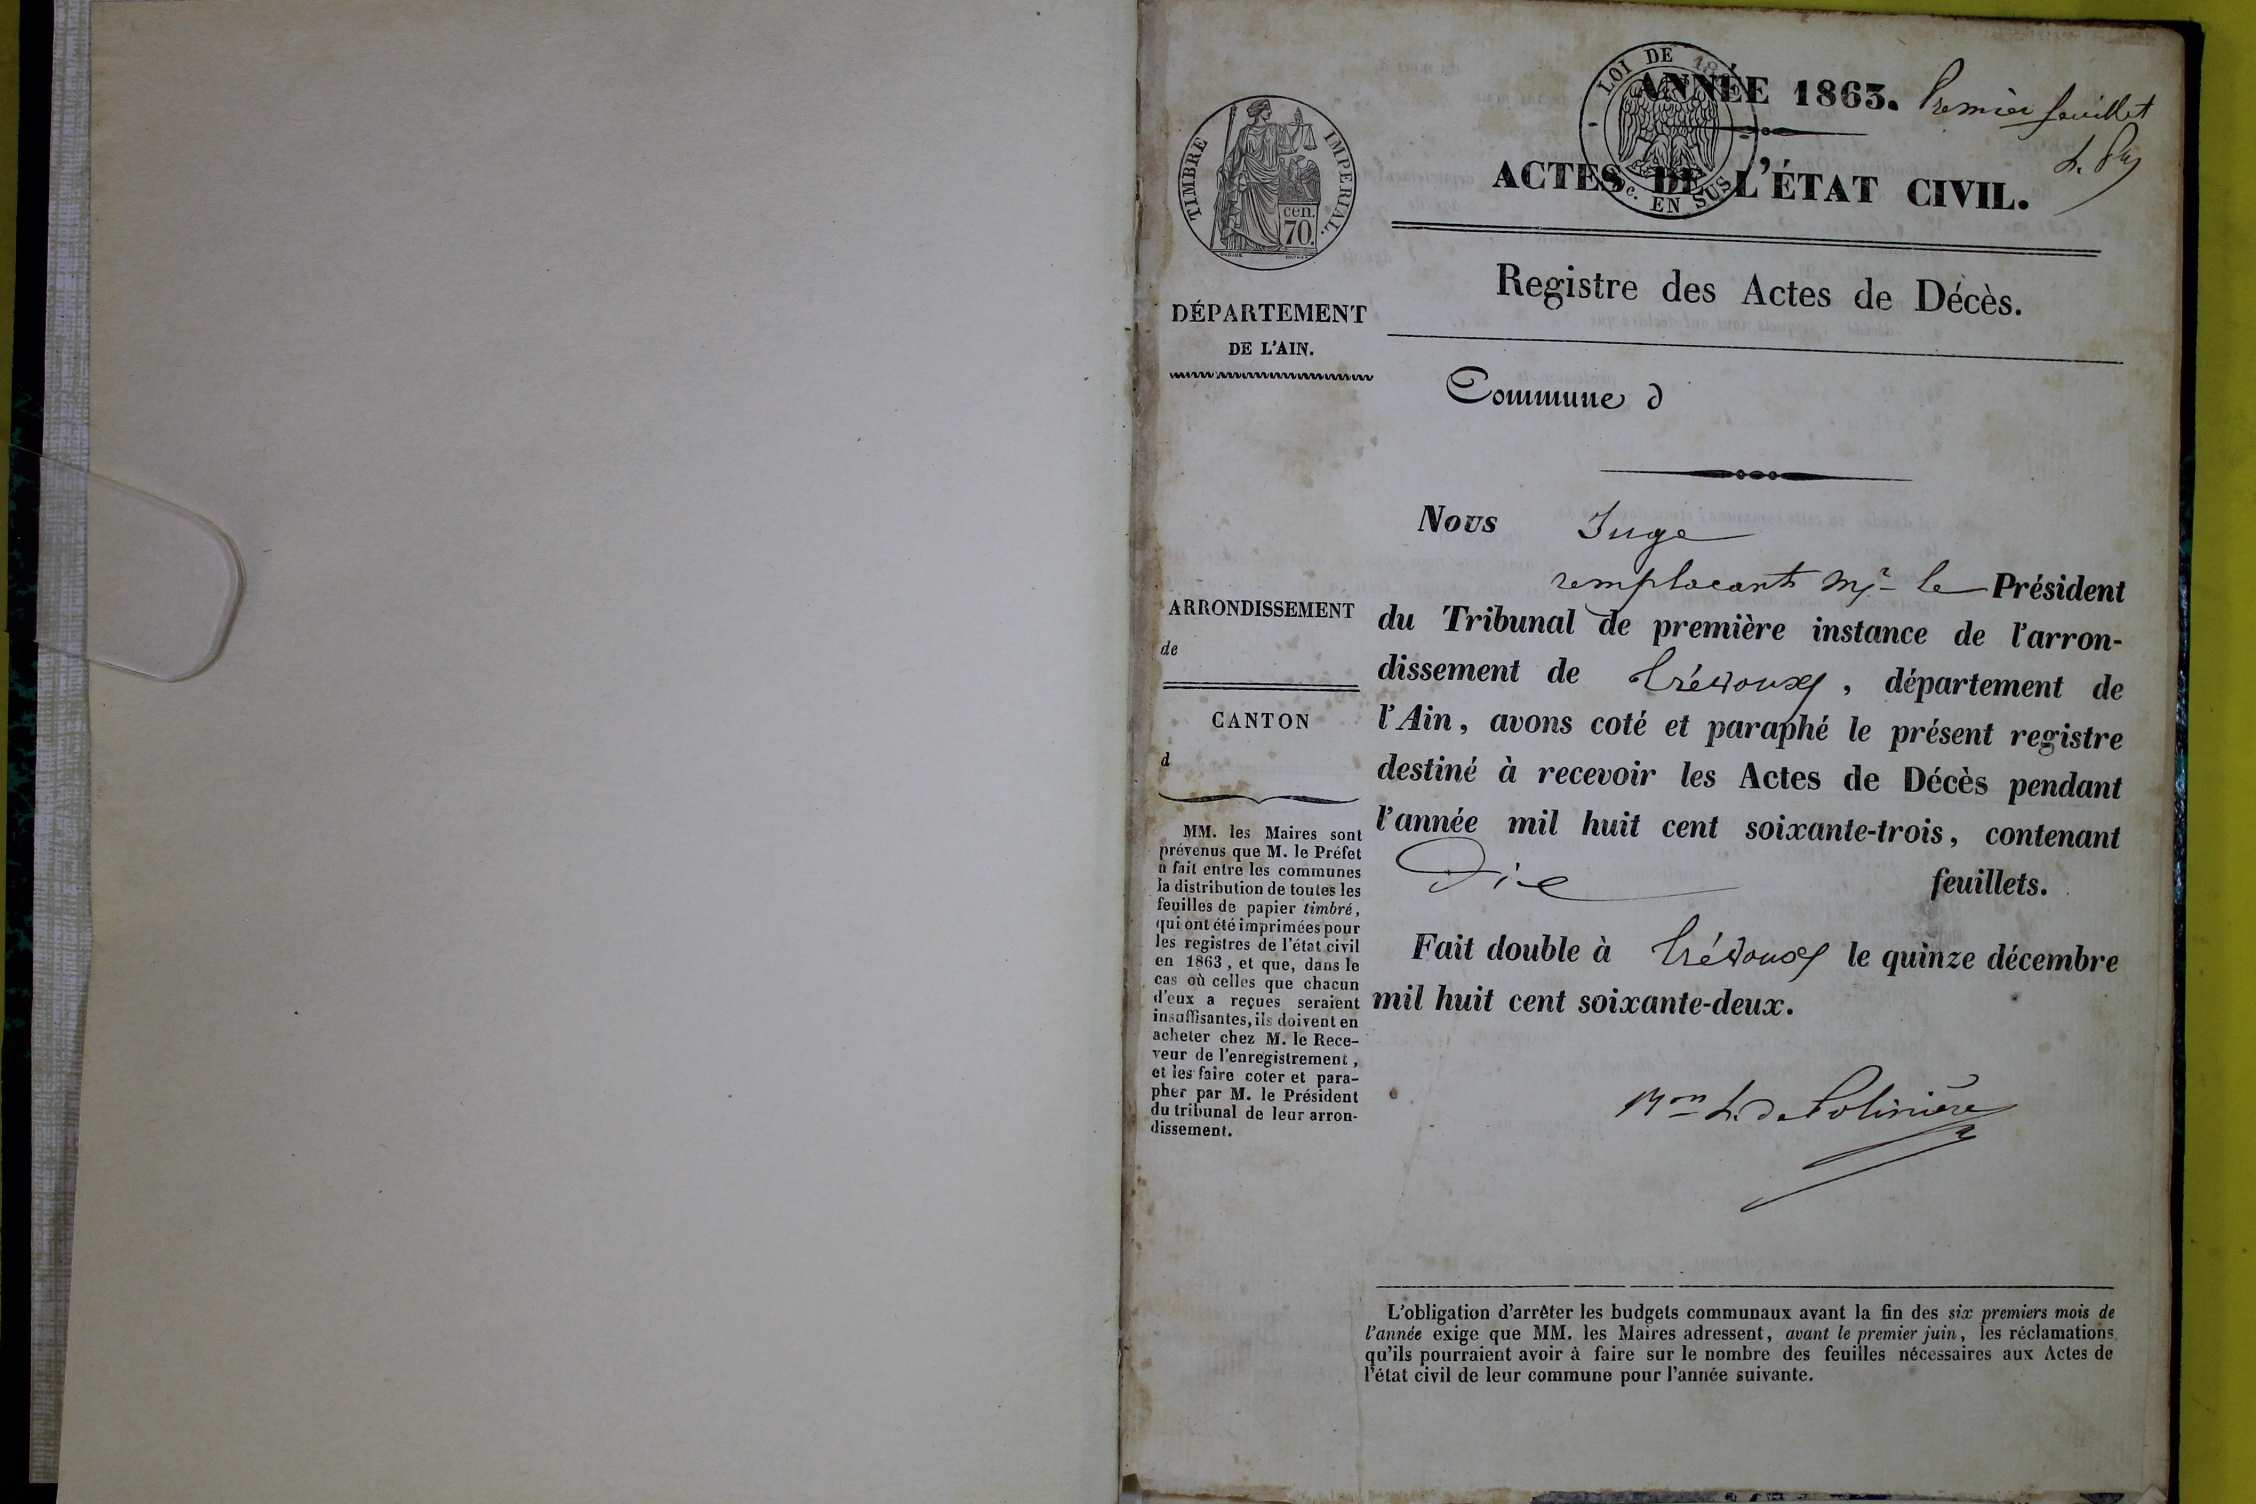 LOI DE
c. EN SUS
ANNÉE 1863. Premier feuillet
TIMBRE IMPERIAL.
cen.
70.
ACTES DE L'ÉTAT CIVIL.
Registre des Actes de Décès.
DÉPARTEMENT
DE L'AIN.
Commune d
Nous Juge
remplacant Mr le Président
du Tribunal de première instance de l'arron-
dissement de Trévoux, département de
l'Ain, avons coté et paraphé le présent registre
destiné à recevoir les Actes de Décès pendant
l'année mil huit cent soixante-trois, contenant
Dix feuillets.
Fait double à Trévoux le quinze décembre
mil huit cent soixante-deux.
L. de Polinière
ARRONDISSEMENT
de
CANTON
d
MM. les Maires sont
prévenus que M. le Préfet
a fait entre les communes
la distribution de toutes les
feuilles de papier timbré,
qui ont été imprimées pour
les registres de l'état civil
en 1863, et que, dans le
cas où celles que chacun
d'eux a reçues seraient
insuffisantes, ils doivent en
acheter chez M. le Rece-
veur de l'enregistrement,
et les faire coter et para-
pher par M. le Président
du tribunal de leur arron-
dissement.
L'obligation d'arrêter les budgets communaux avant la fin des six premiers mois de
l'année exige que MM. les Maires adressent, avant le premier juin, les réclamations
qu'ils pourraient avoir à faire sur le nombre des feuilles nécessaires aux Actes de
l'état civil de leur commune pour l'année suivante.